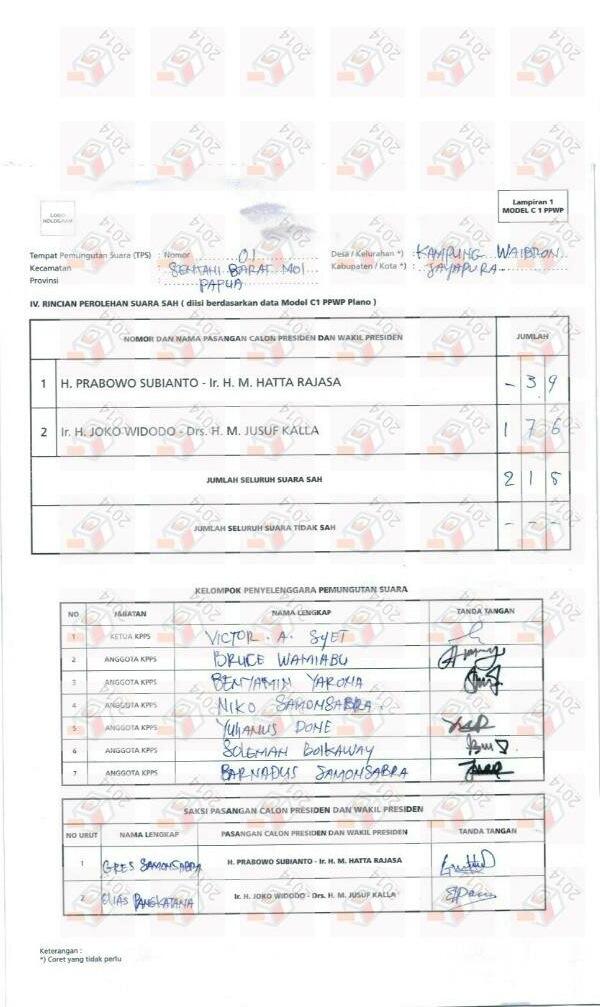 Lampiran 1
MODEL C 1 PPWP
LOGO
HOLOGRAM
Tempat Pemungutan Suara (TPS) : Nomor 01 Desa / Kelurahan *) : KAMPUNG WAIBRON
Kecamatan : SENTANI BARAT MOI Kabupaten / Kota *) : JAYAPURA
Provinsi : PAPUA
IV. RINCIAN PEROLEHAN SUARA SAH ( diisi berdasarkan data Model C1 PPWP Plano )
NOMOR DAN NAMA PASANGAN CALON PRESIDEN DAN WAKIL PRESIDEN JUMLAH
1 H. PRABOWO SUBIANTO - Ir. H. M. HATTA RAJASA - 3 9
2 Ir. H. JOKO WIDODO - Drs. H. M. JUSUF KALLA 1 7 6
JUMLAH SELURUH SUARA SAH 2 1 5
JUMLAH SELURUH SUARA TIDAK SAH - - -
KELOMPOK PENYELENGGARA PEMUNGUTAN SUARA
NO JABATAN NAMA LENGKAP TANDA TANGAN
1 KETUA KPPS VICTOR . A. SYET
2 ANGGOTA KPPS BRUCE WAMIABU
3 ANGGOTA KPPS BENYAMIN YAROMA
4 ANGGOTA KPPS NIKO SAMONSABRA.
5 ANGGOTA KPPS YULIANUS DONE
6 ANGGOTA KPPS SOLEMAN BOIKAWAY
7 ANGGOTA KPPS BARNADUS SAMONSABRA
SAKSI PASANGAN CALON PRESIDEN DAN WAKIL PRESIDEN
NO URUT NAMA LENGKAP PASANGAN CALON PRESIDEN DAN WAKIL PRESIDEN TANDA TANGAN
1 GRES SAMONSABRA H. PRABOWO SUBIANTO - Ir. H. M. HATTA RAJASA
2 ELIAS PANGKATANA Ir. H. JOKO WIDODO - Drs. H. M. JUSUF KALLA
Keterangan :
*) Coret yang tidak perlu